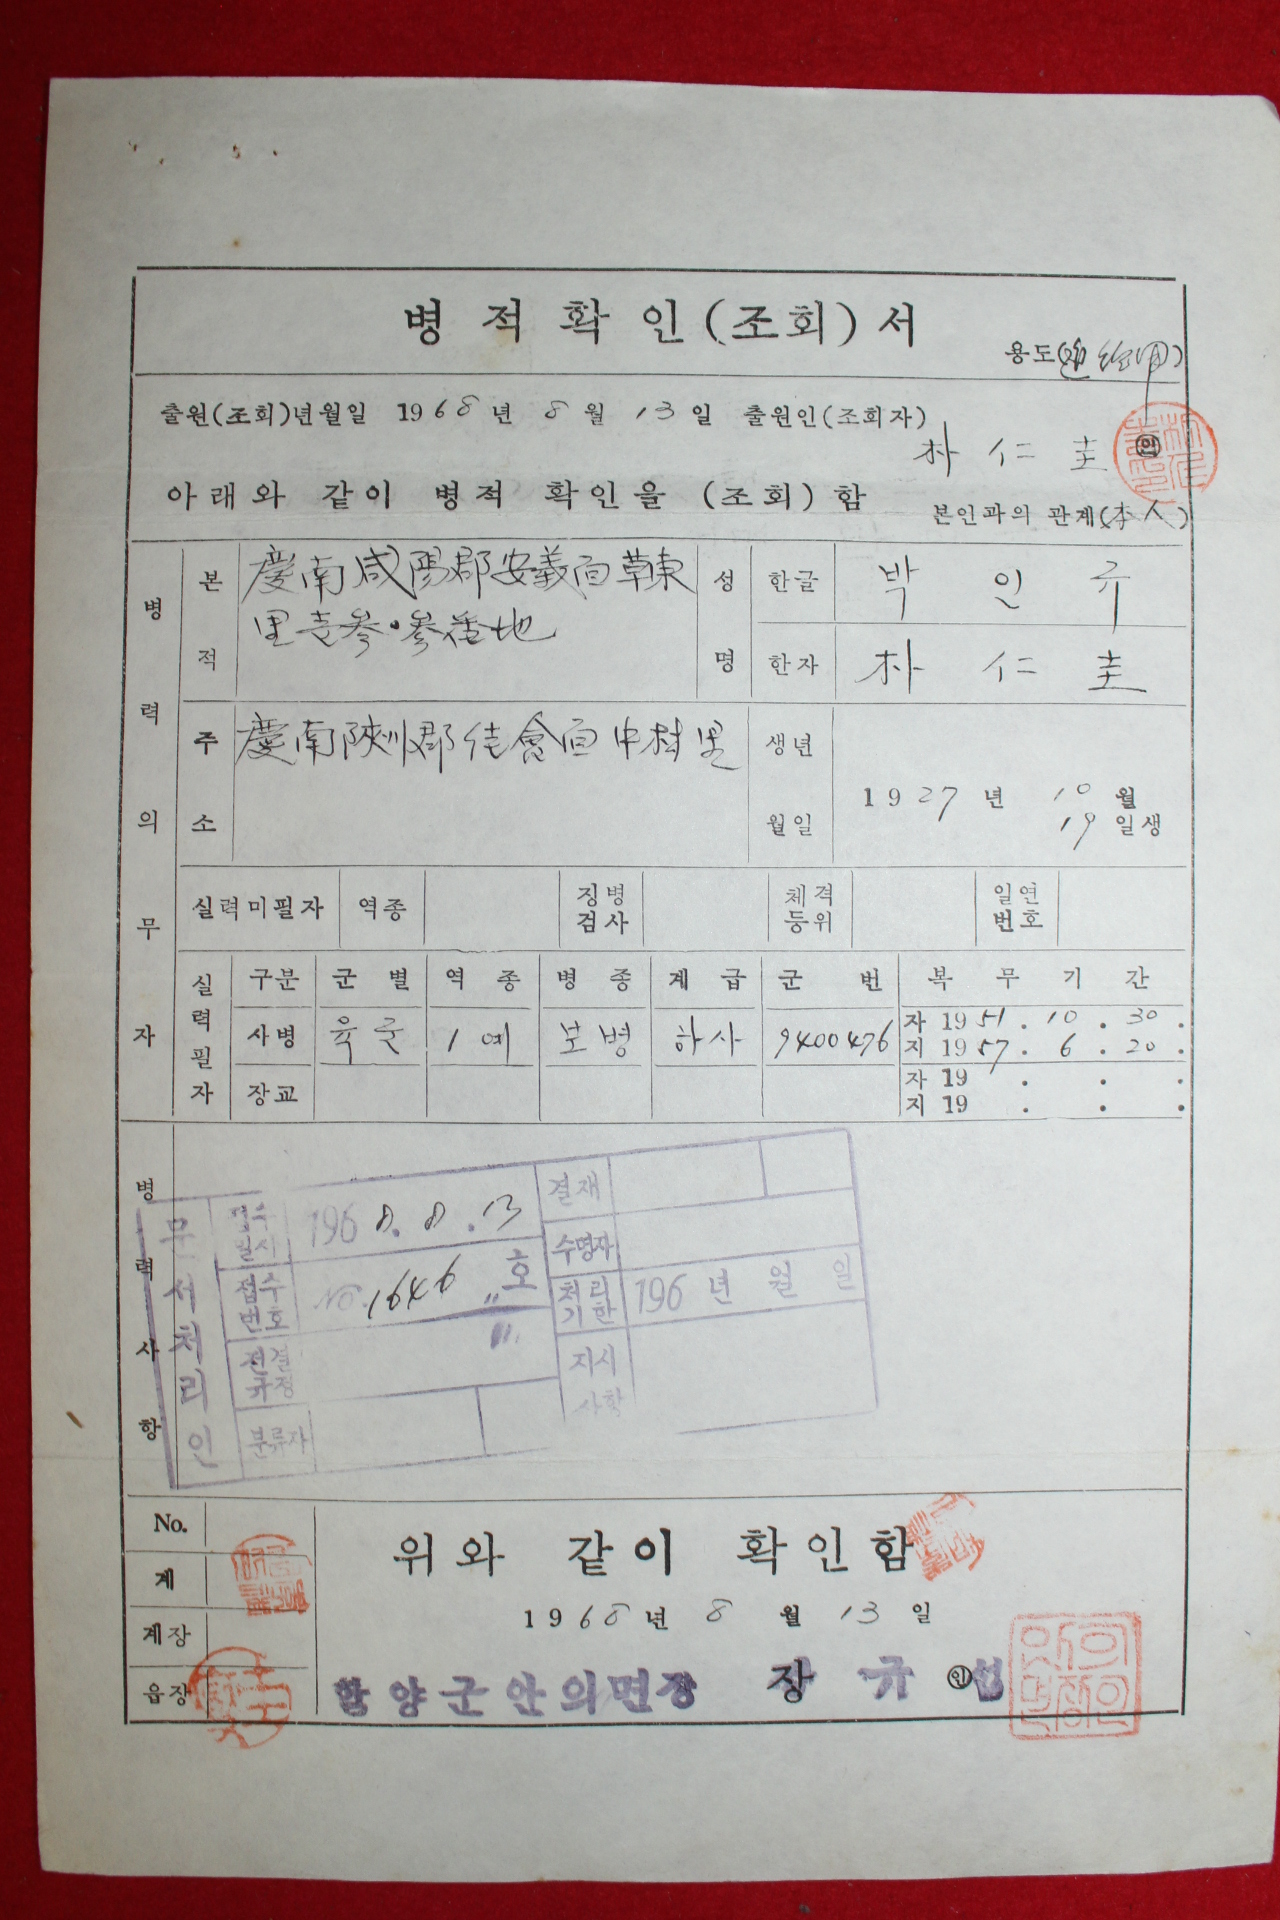 병적확인(조회)서
용도(        用)
출원(조회)년월일 1968년 8월 13일 출원인(조회자)
朴仁圭 ㊞
아래와 같이 병적 확인을 (조회)함
본인과의 관계(本人)
병력의무자
본적 慶南咸陽郡安義面草東
里壱參·參番地
성명 한글 박인규
한자 朴仁圭
주소 慶南陜川郡佳會面中村里
생년월일 1927년 10월
19일생
실력미필자 역종 징병검사 체격등위 일연번호
실력필자 구분 군별 역종 병종 계급 군번 복무기간
사병 육군 1예 보병 하사 9400476 자 1951.10.30.
지 1957.6.20.
장교 자 19 . . .
지 19 . . .
병력사항
문서처리인
일시 1968.8.13 결재
접수번호 No.1646 호 수명자
처리기한 196 년 월 일
전결규정 지시사항
분류자
No.
계
계장
읍장
위와 같이 확인함
1968년 8월 13일
함양군안의면장 장규섭 ㊞